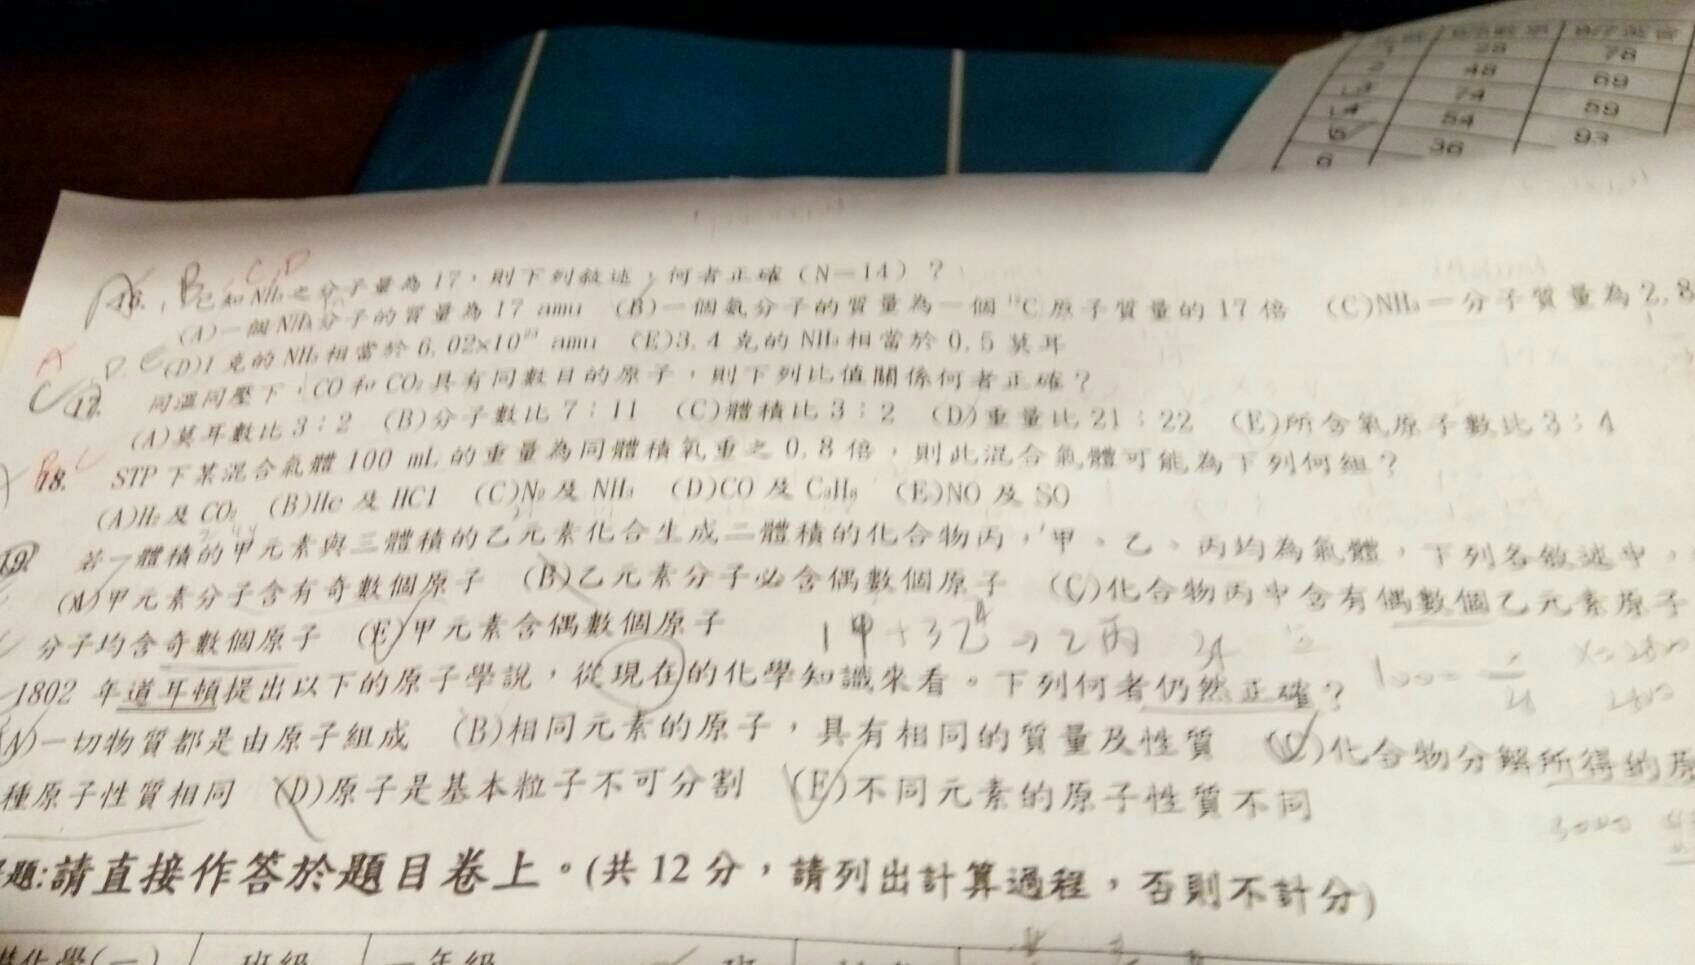 28 78
2 48 69
74 59
54 93
36
6
B C,D
16. 已知NH₃之分子量為17,則下列敘述,何者正確(N=14)?
(A)一個NH₃分子的質量為17 amu (B)一個氨分子的質量為一個¹²C原子質量的17倍 (C)NH₃一分子質量為2.8
(D)1克的NH₃相當於6.02×10²³ amu (E)3.4克的NH₃相當於0.5莫耳
17. 同溫同壓下,CO和CO₂具有同數目的原子,則下列比值關係何者正確?
(A)莫耳數比3:2 (B)分子數比7:11 (C)體積比3:2 (D)重量比21:22 (E)所含氧原子數比3:4
18. STP下某混合氣體100 mL的重量為同體積氧重之0.8倍,則此混合氣體可能為下列何組?
(A)H₂及CO₂ (B)He及HCl (C)N₂及NH₃ (D)CO及C₃H₈ (E)NO及SO
19. 若一體積的甲元素與三體積的乙元素化合生成二體積的化合物丙,甲、乙、丙均為氣體,下列各敘述中,
(A)甲元素分子含有奇數個原子 (B)乙元素分子必含偶數個原子 (C)化合物丙中含有偶數個乙元素原子
分子均含奇數個原子 (E)甲元素含偶數個原子
1甲+3乙→2丙
1802年道耳頓提出以下的原子學說,從現在的化學知識來看。下列何者仍然正確?
(A)一切物質都是由原子組成 (B)相同元素的原子,具有相同的質量及性質 (C)化合物分解所得的原
種原子性質相同 (D)原子是基本粒子不可分割 (E)不同元素的原子性質不同
3000
題:請直接作答於題目卷上。(共12分,請列出計算過程,否則不計分)
化學(一) 班級 一年級 班